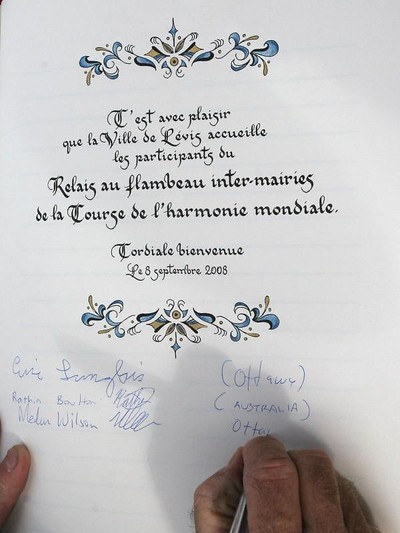 C'est avec plaisir
que la Ville de Lévis accueille
les participants du
Relais au flambeau inter-mairies
de la Course de l'harmonie mondiale.
Cordiale bienvenue
Le 8 septembre 2008
(Ottawa)
Boulton (AUSTRALIA)
Wilson Otta